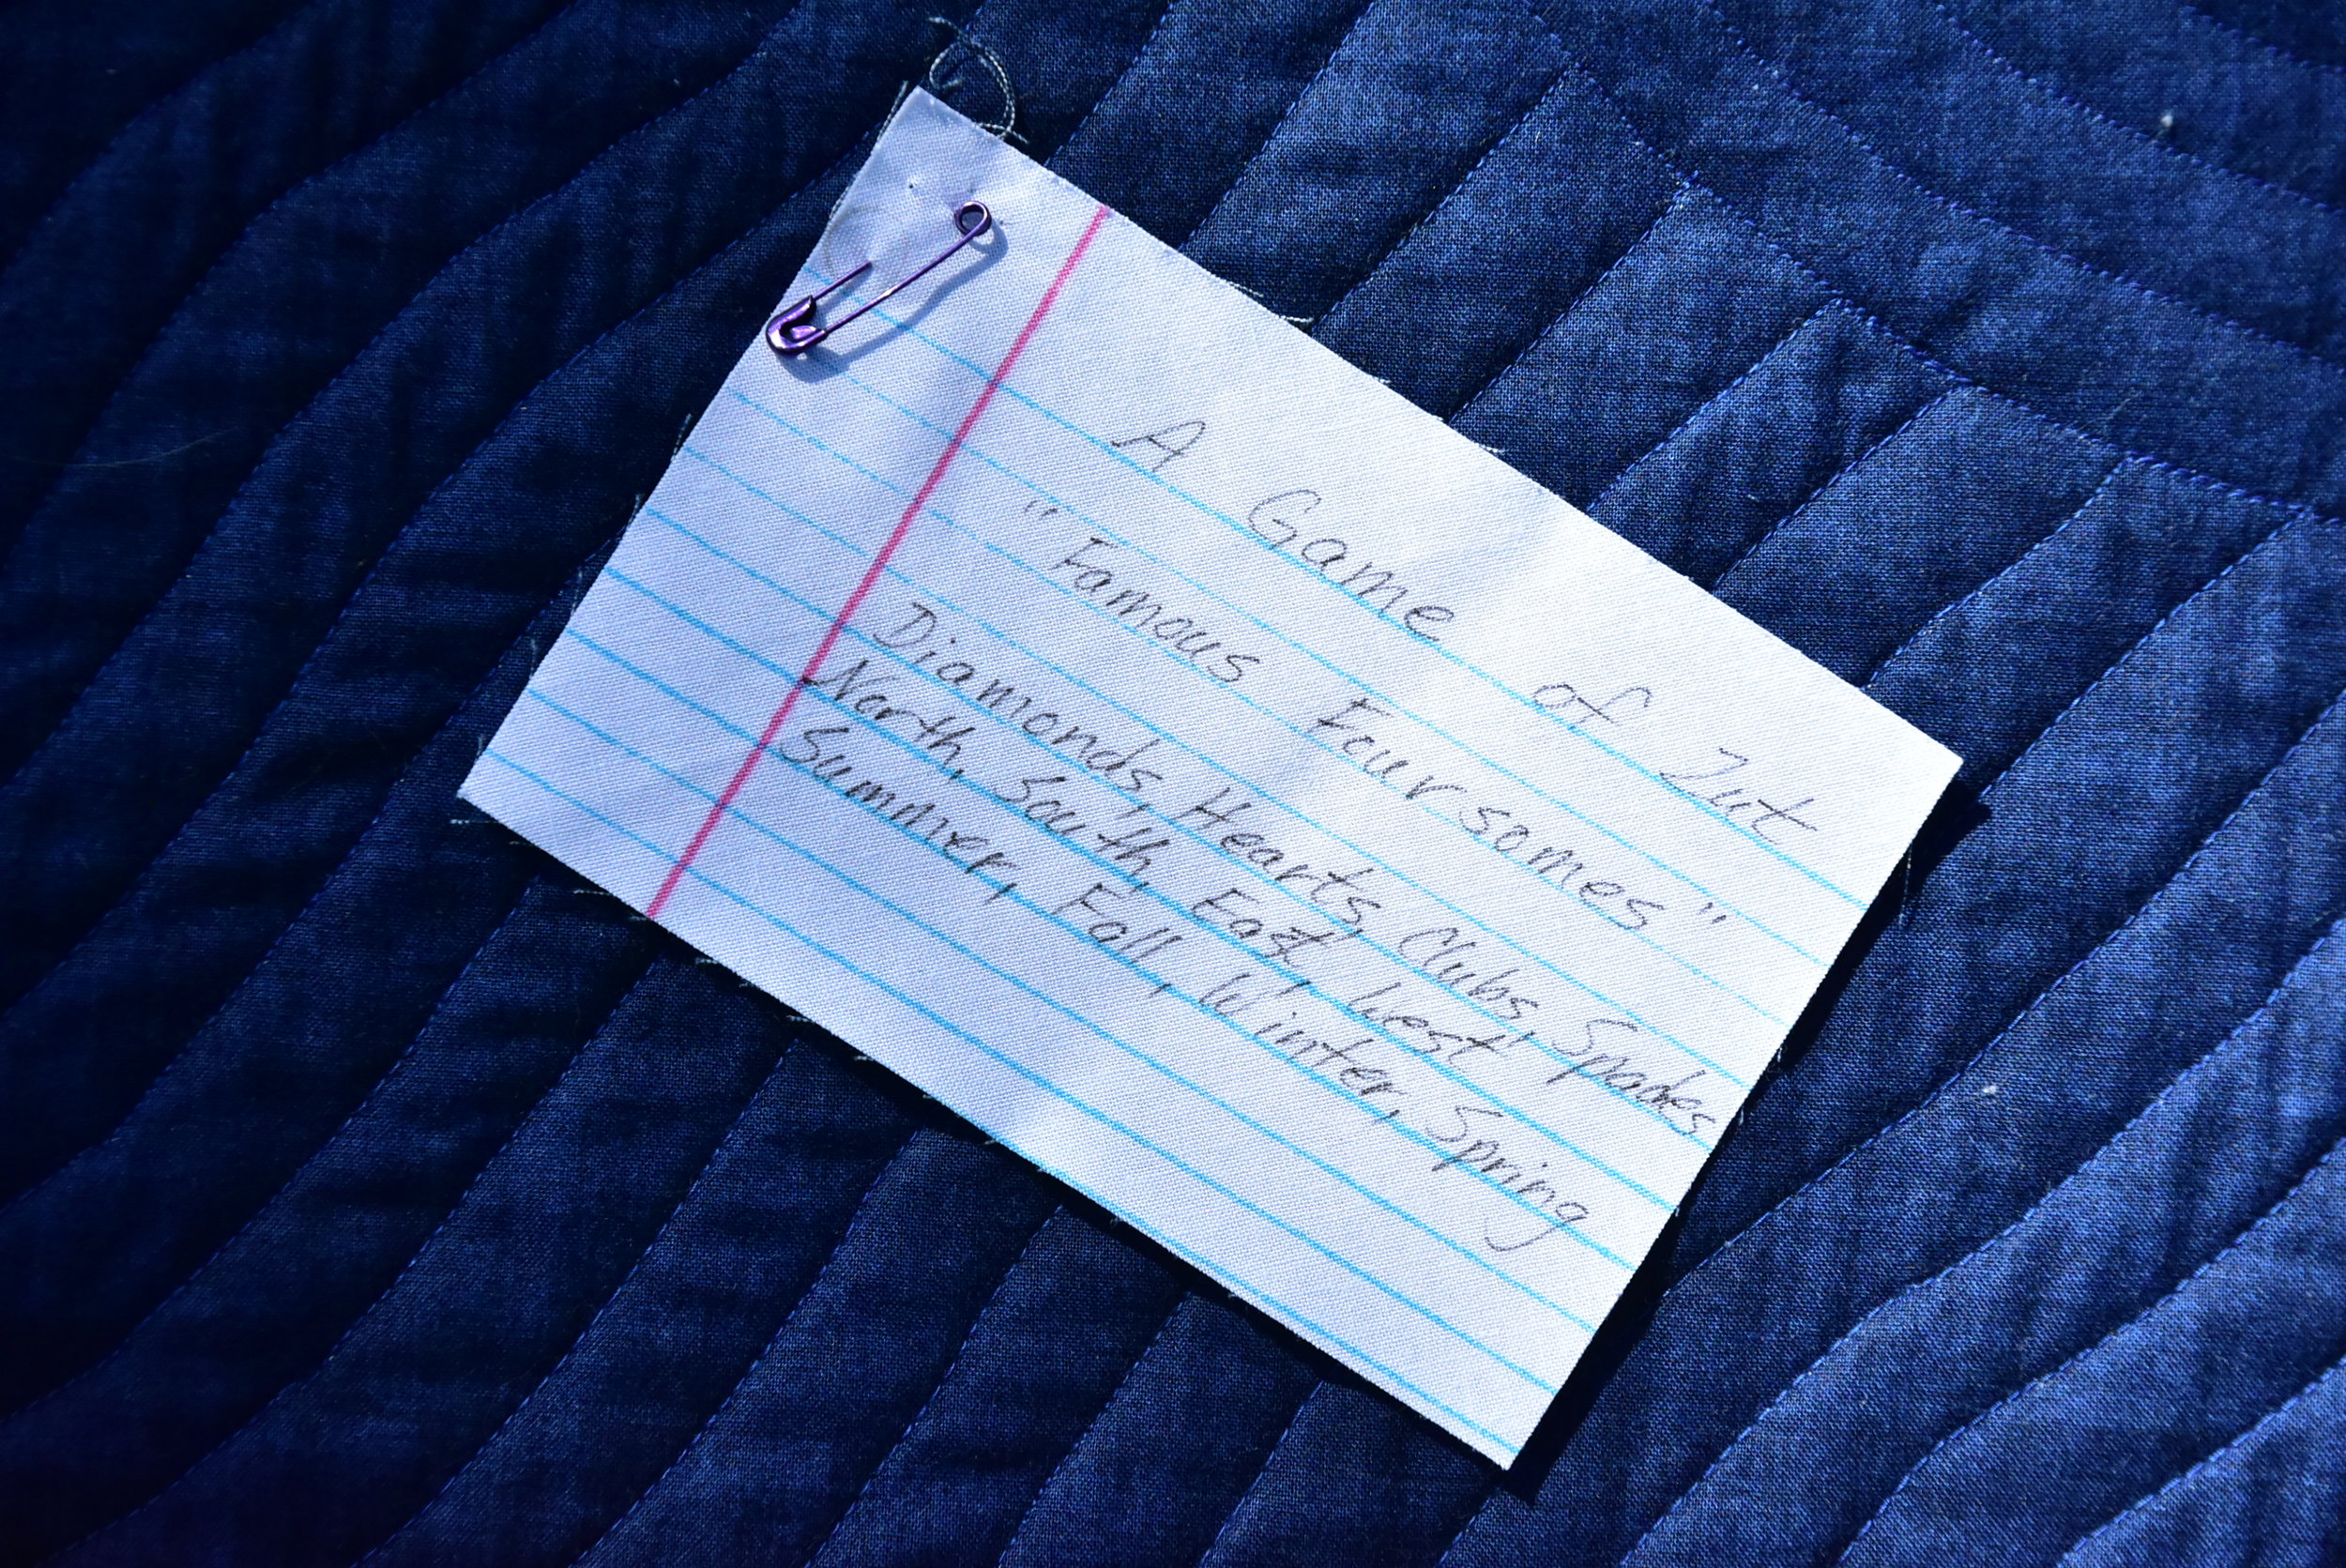 A Game of Zut
"Famous Foursomes"
Diamonds, Hearts, Clubs, Spades
North, South, East, West
Summer, Fall, Winter, Spring